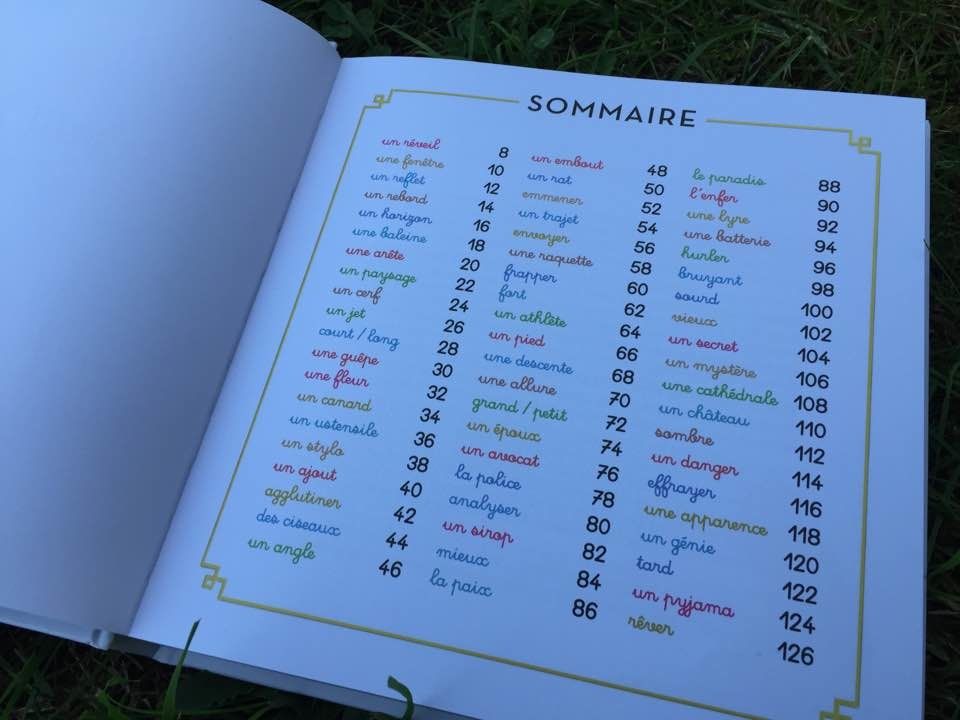 SOMMAIRE
un réveil 8
une fenêtre 10
un reflet 12
un rebord 14
un horizon 16
une baleine 18
une arête 20
un paysage 22
un cerf 24
un jet 26
court / long 28
une guêpe 30
une fleur 32
un canard 34
un ustensile 36
un stylo 38
un ajout 40
agglutiner 42
des ciseaux 44
un angle 46
un embout 48
un rat 50
emmener 52
un trajet 54
envoyer 56
une raquette 58
frapper 60
fort 62
un athlète 64
un pied 66
une descente 68
une allure 70
grand / petit 72
un époux 74
un avocat 76
la police 78
analyser 80
un sirop 82
mieux 84
la paix 86
le paradis 88
l'enfer 90
une lyre 92
une batterie 94
hurler 96
bruyant 98
sourd 100
vieux 102
un secret 104
un mystère 106
une cathédrale 108
un château 110
sombre 112
un danger 114
effrayer 116
une apparence 118
un génie 120
tard 122
un pyjama 124
rêver 126